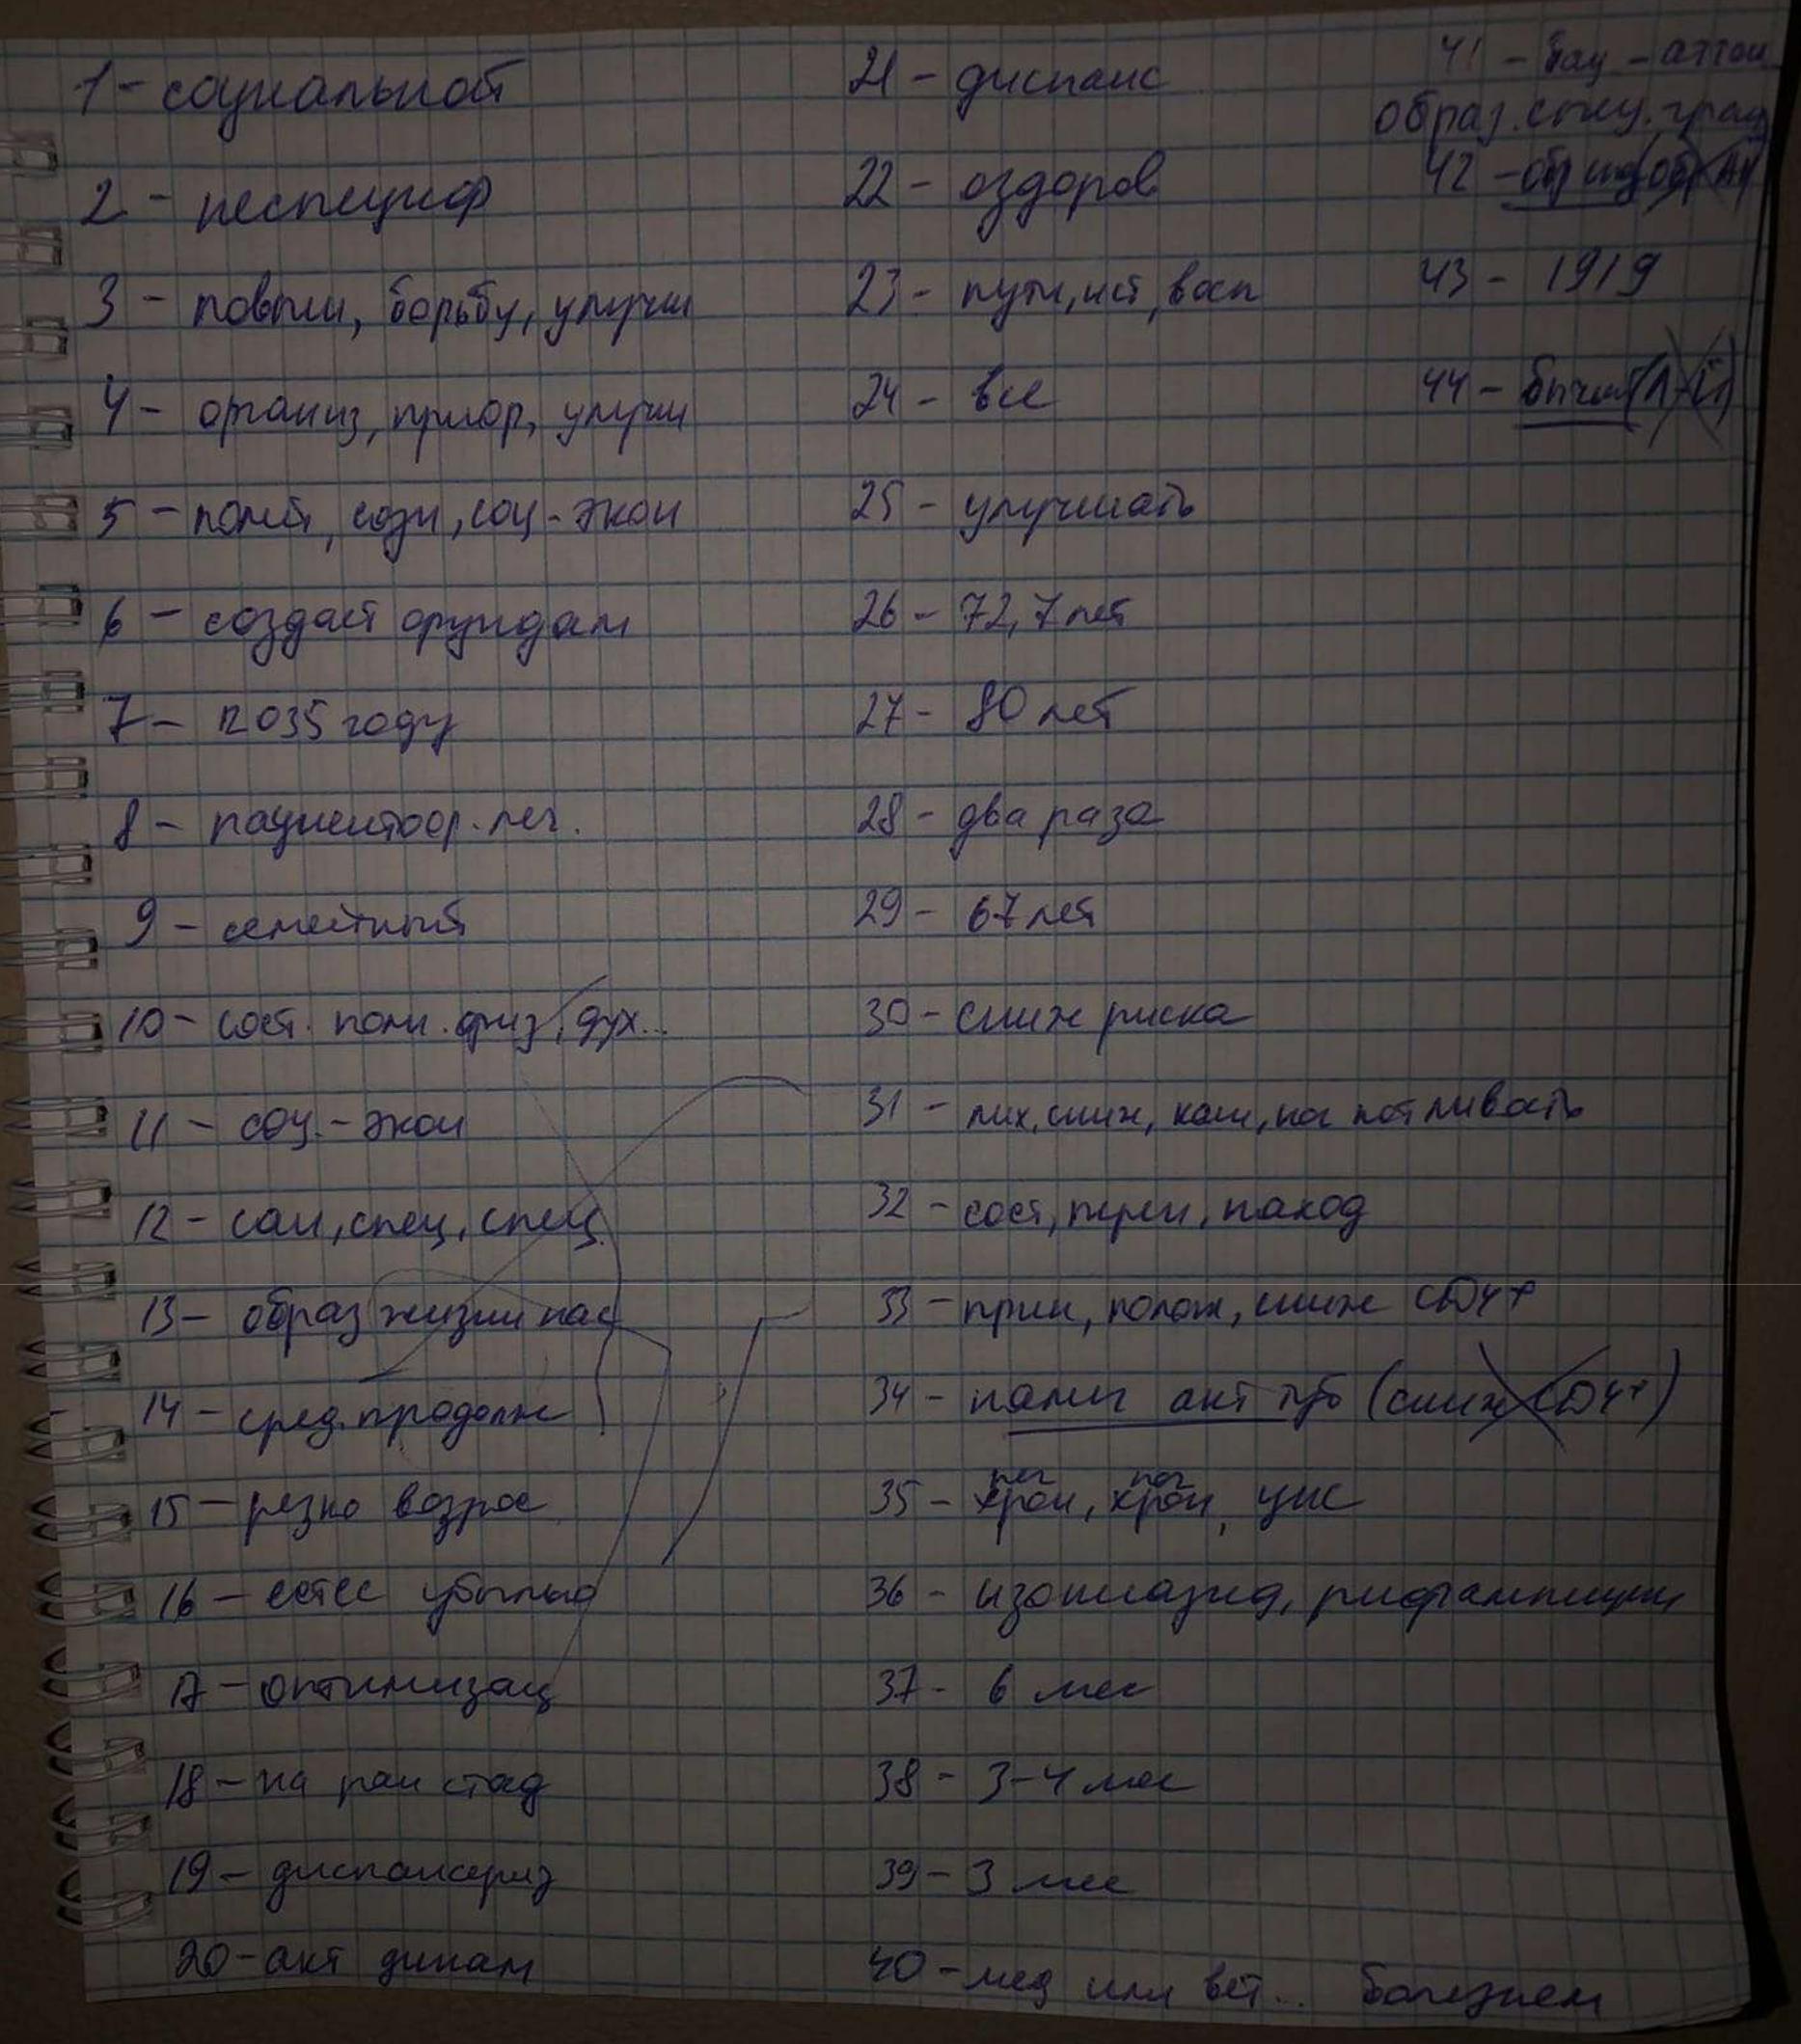 1 - социальной
2 - неспециф
3 - повыш, борьбу, улучш
4 - организ, приор, улучш
5 - полит, созн, соц-экон
6 - создает фундам
7 - 2035 году
8 - пациентоор. леч.
9 - семейный
10 - сост. полн. физ, дух...
11 - соц.-экон
12 - сан, спец, спец
13 - образ жизни нас
14 - сред. продолж
15 - резко возрос
16 - естес убылью
17 - оптимизац
18 - на ран стад
19 - диспансериз
20 - акт динам
21 - диспанс
22 - оздоров
23 - пути, ист, восп
24 - все
25 - улучшать
26 - 72,7 лет
27 - 80 лет
28 - два раза
29 - 67 лет
30 - сниж риска
31 - лих, сниж, каш, ноч потливость
32 - сост, перен, наход
33 - прин, полож, сниж CD4+
34 - налич акт туб (сниж CD4+)
35 - хрон, хрон, цис
леч поч
36 - изониазид, рифампицин
37 - 6 мес
38 - 3-4 мес
39 - 3 мес
40 - мед или вет... болезнем
41 - нац - аттом
образ. спец. град
42 - обр
43 - 1919
44 -